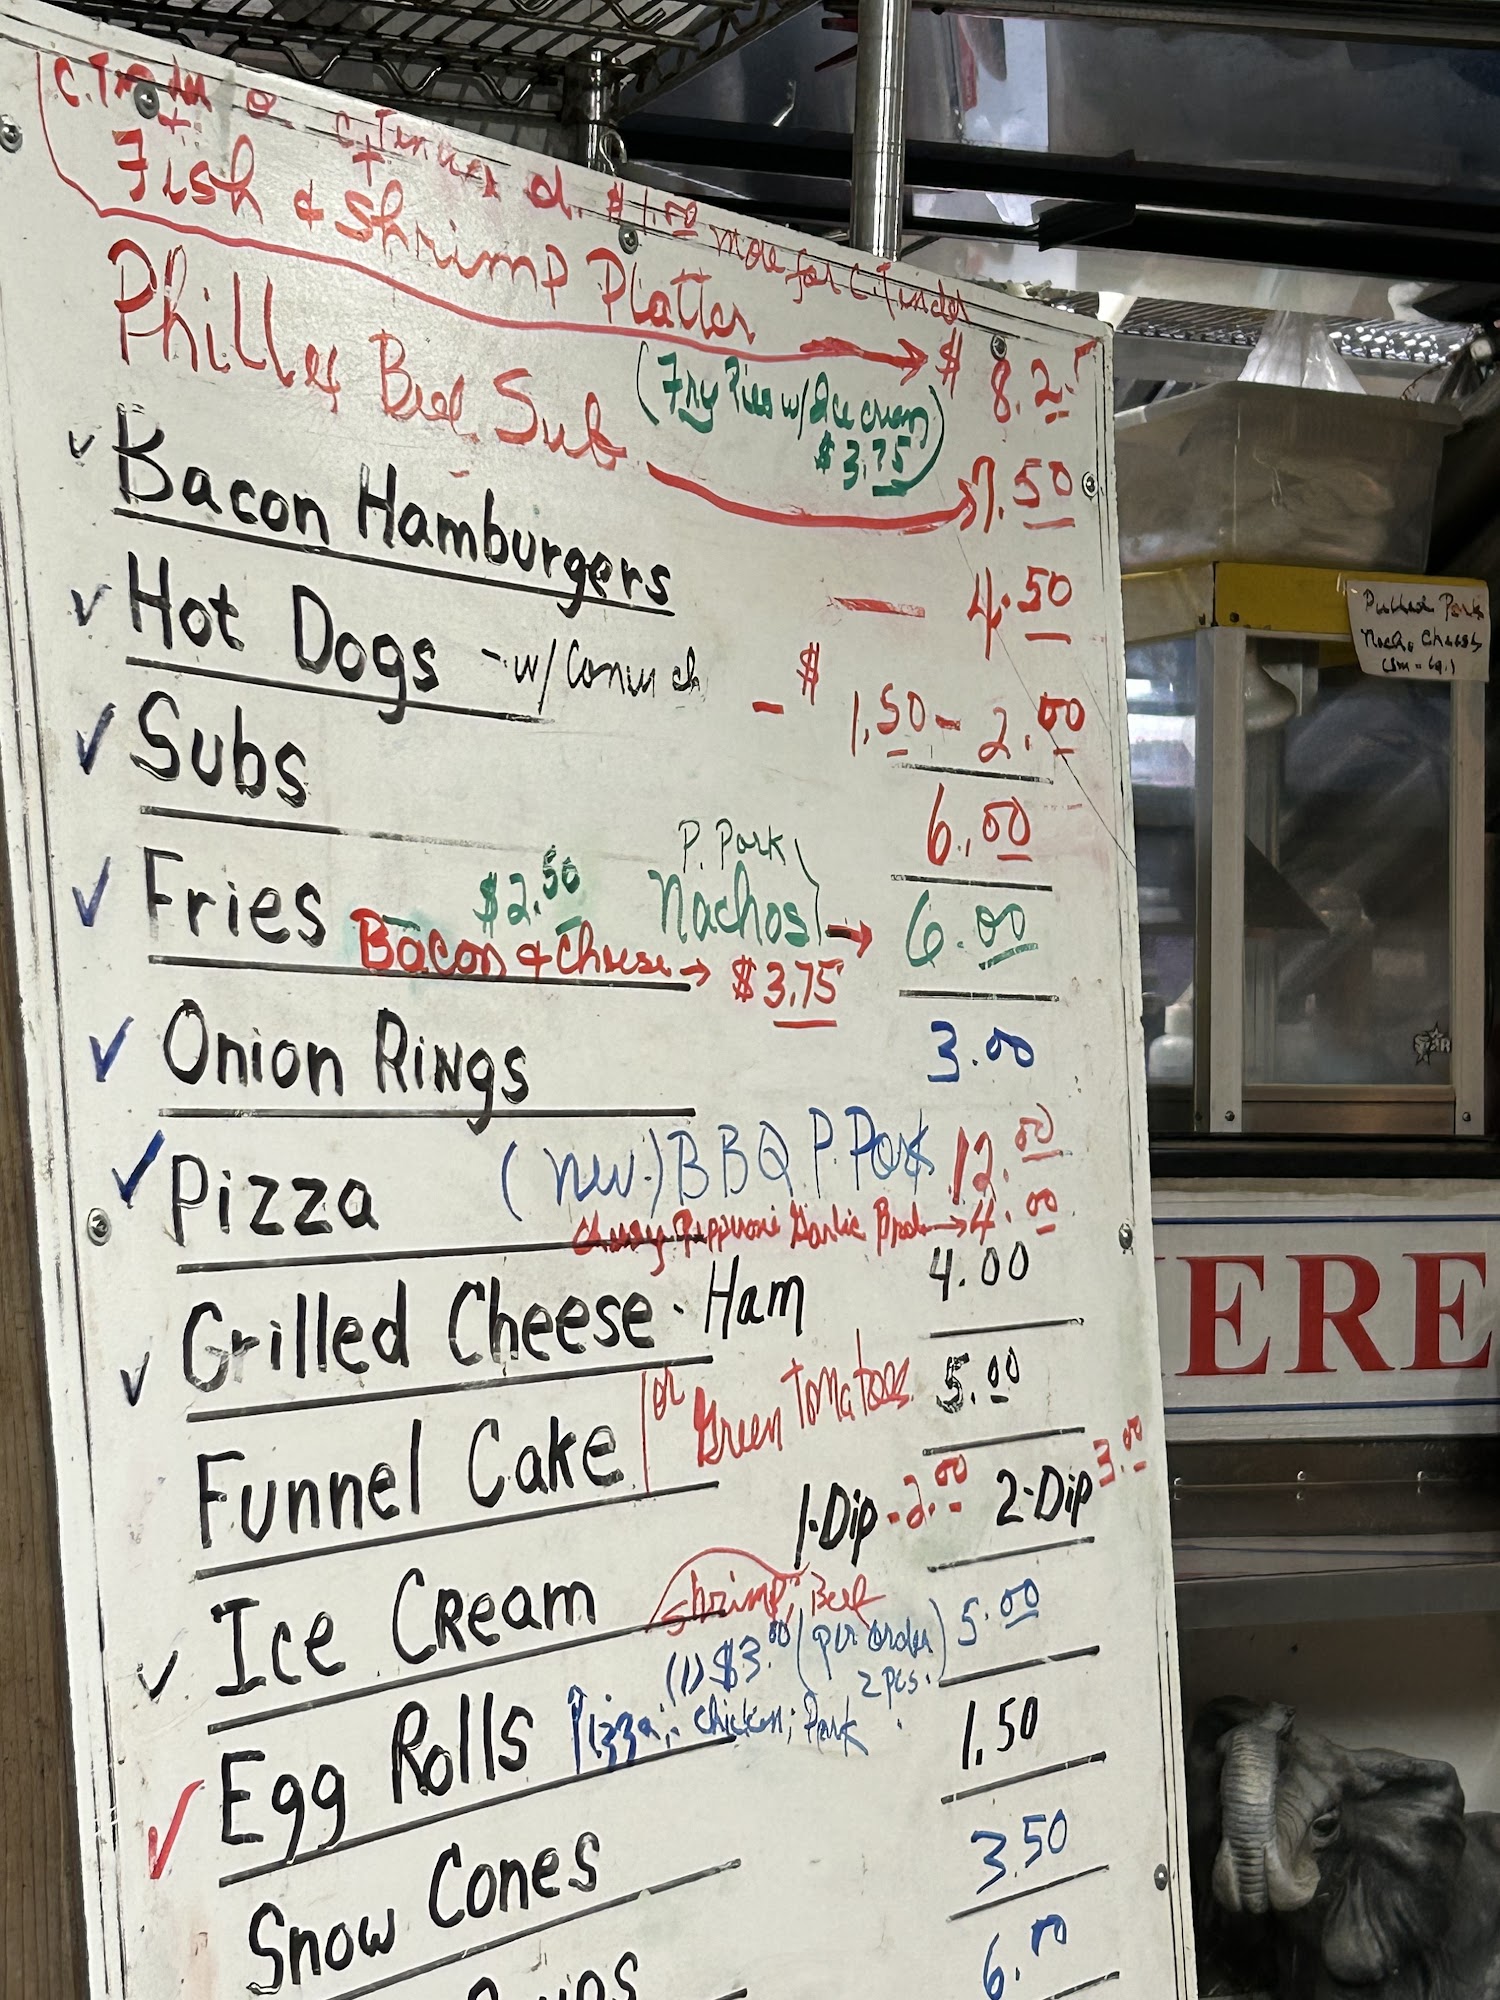 C. Tender $1.00 more for C. Tinder
Fish & Shrimp Platter $ 8.25
Philly Beef Sub 7.50
(Fry Pies w/ Ice cream
$3.75)
Bacon Hamburgers — 4.50
Hot Dogs - w/ - $ 1.50 - 2.00
Subs 6.00
P. Pork
Fries $2.50 Nachos 6.00
Bacon & Cheese $3.75
Onion Rings 3.00
Pizza (new) BBQ P. Pork 12.00
Pepperoni Garlic 4.00
Grilled Cheese - Ham 4.00
Funnel Cake or Green Tomatoes 5.00
1-Dip - 2.00 2-Dip 3.00
Ice Cream
Shrimp; Beef
(1) $3.00 (per order 5.00
2 pcs.)
Egg Rolls Pizza; Chicken; Pork 1.50
Snow Cones 3.50
6.00
Pulled Pork
Nacho Cheese
ERE
STAR